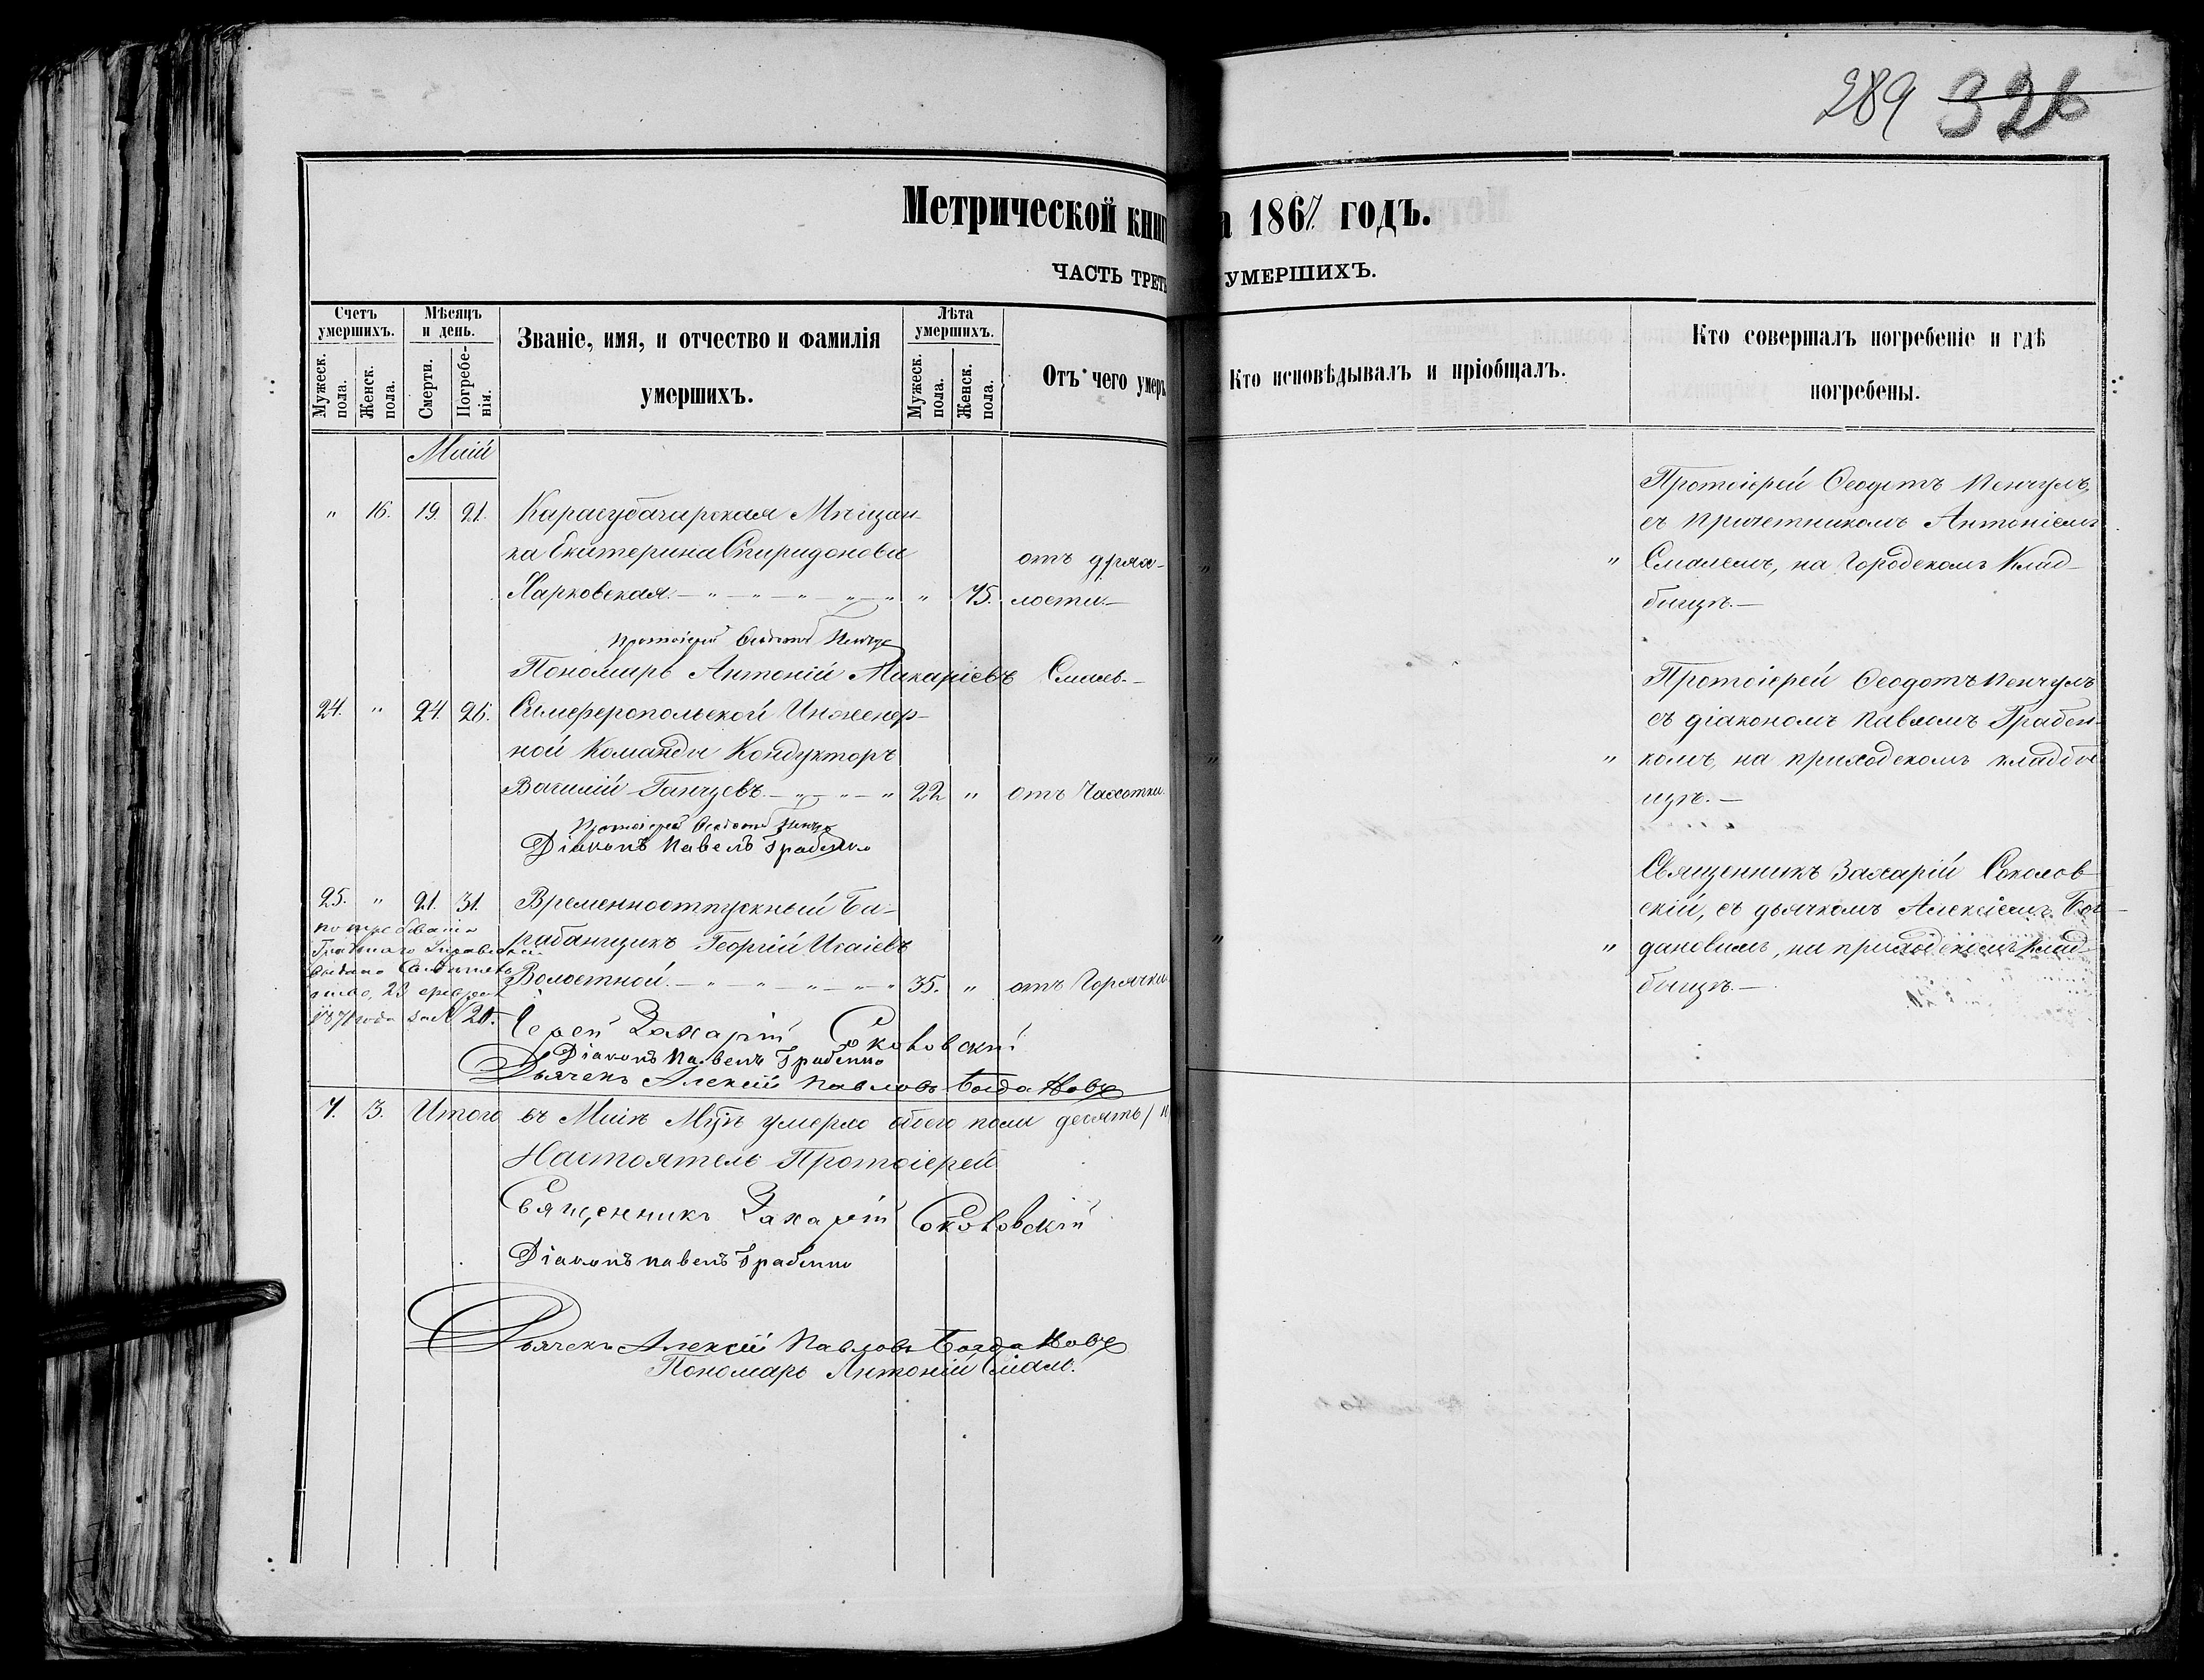 289 326
Метрической книг
а 1867 годъ.
ЧАСТЬ ТРЕТЬ
УМЕРШИХЪ.
Счетъ умершихъ.
Мужеск. пола.
Женск. пола.
Мѣсяцъ и день.
Смерти.
Погребенія.
Званіе, имя, и отчество и фамилія
умершихъ.
Лѣта умершихъ.
Мужеск. пола.
Женск. пола.
Отъ чего умер
Кто исповѣдывалъ и пріобщалъ.
Кто совершалъ погребеніе и гдѣ
погребены.
Маій
" 16. 19. 21. Карасубазарская Мѣщан-
ка Екатерина Спиридонова
Харковская. " 75.
отъ дрях-
лости.
" "
Протоіерей Ѳеодотъ Пенчулъ,
съ причетникомъ Антоніемъ
Смалемъ, на Городскомъ Клад-
бищѣ.
Протоіерей Ѳеодотъ Пенчул
Пономарь Антоній Макаріевъ Смаль.
24. " 24. 26. Симферопольской Инженер-
ной Команды Кондукторъ
Василій Ганчевъ. 22 " отъ Чахотки.
" "
Протоіерей Ѳеодотъ Пенчулъ
съ діакономъ Павломъ Грабен-
комъ, на приходскомъ кладби-
щѣ.
Протоіерей Ѳеодотъ Пенчул
Діаконъ Павелъ Грабенко
25. " 21. 31. Временноотпускный Ба-
рабанщикъ Георгій Исаіевъ
Волостной. 35. " отъ Горячки
" "
Священникъ Захарій Соколов-
скій, съ дьячкомъ Алексіемъ Бог-
дановымъ, на приходскомъ Клад-
бищѣ.
по требованію
1871 года за №
Іерей Захарій Соколовскій
Діаконъ Павелъ Грабенко
Дьячекъ Алексій Павловъ Богдановъ
7. 3. Итого въ Маіѣ Мцѣ умерло обоего пола десять
Настоятель Протоіерей
Священникъ Захарій Соколовскій
Діаконъ Павелъ Грабенко
Дьячекъ Алексій Павловъ Богдановъ
Пономарь Антоній Смаль.